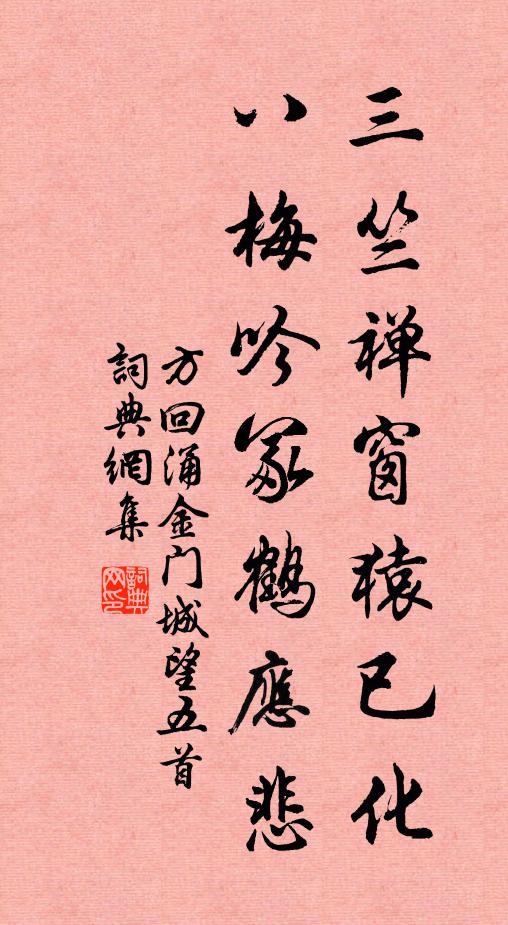 三竺禅窗猿已化
八梅吟冢鶴應悲
方回涌金门城望五首
詞典網集
詞典网印